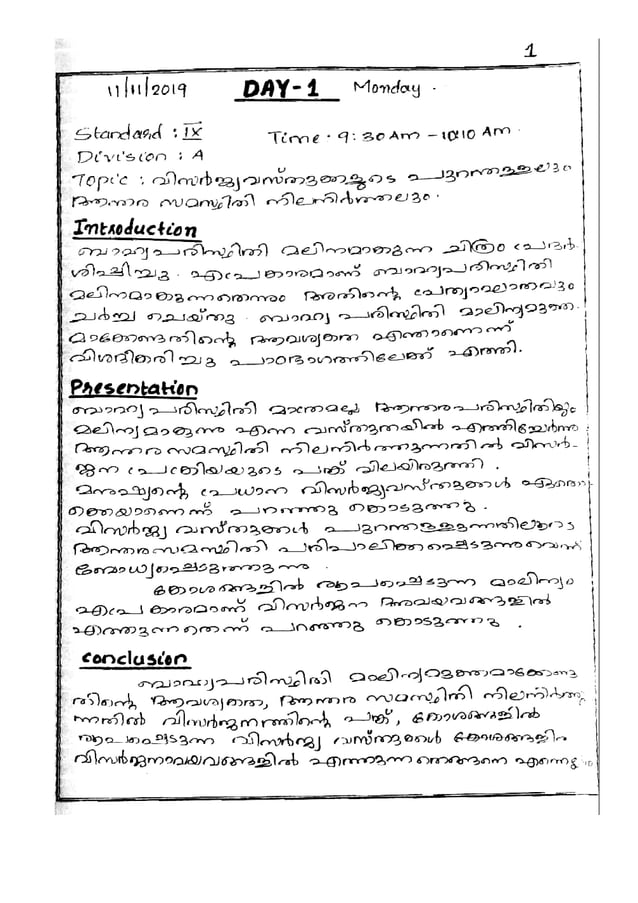 1
11/11/2019 DAY-1 Monday.
Standard : IX Time. 9:30 Am - 10:10 Am.
Division : A
Topic : വിസർജ്യവസ്തുക്കളുടെ പുറന്തള്ളലും
ആന്തര സമസ്ഥിതി നിലനിർത്തലും.
Introduction
ബാഹ്യപരിസ്ഥിതി മലിനമാകുന്ന ചിത്രം പ്രദർ-
ശിപ്പിച്ചു. എപ്രകാരമാണ് ബാഹ്യപരിസ്ഥിതി
മലിനമാകുന്നതെന്നും അതിന്റെ പ്രത്യാഘാതവും
ചർച്ച ചെയ്തു. ബാഹ്യ പരിസ്ഥിതി മാലിന്യമുക്ത
മാക്കേണ്ടതിന്റെ ആവശ്യകത എന്താണെന്ന്
വിശദീകരിച്ചു പാഠഭാഗത്തിലേക്ക് എത്തി.
Presentation
ബാഹ്യപരിസ്ഥിതി മാത്രമല്ല ആന്തരപരിസ്ഥിതിയും
മലിന്യമാകുന്നു എന്ന വസ്തുതയിൽ എത്തിച്ചേർന്നു
ആന്തരസമസ്ഥിതി നിലനിർത്തുന്നതിൽ വിസർ-
ജ്ജന പ്രക്രിയയുടെ പങ്ക് വിലയിരുത്തി.
മനുഷ്യന്റെ പ്രധാന വിസർജ്യവസ്തുക്കൾ ഏതൊ-
ക്കെയാണെന്ന് പറഞ്ഞു കൊടുത്തു.
വിസർജ്യ വസ്തുക്കൾ പുറന്തള്ളുന്നതിലൂടെ
ആന്തരസമസ്ഥിതി പരിപാലിക്കപ്പെടുന്നുവെന്ന്
ബോധ്യപ്പെടുത്തുന്നു.
കോശങ്ങളിൽ രൂപപ്പെടുന്ന മാലിന്യം
എപ്രകാരമാണ് വിസർജ്ജന അവയവങ്ങളിൽ
എത്തുന്നതെന്ന് പറഞ്ഞു കൊടുത്തു.
Conclusion
ബാഹ്യപരിസ്ഥിതി മാലിന്യമുക്തമാക്കേണ്ട
തിന്റെ ആവശ്യകത, ആന്തര സമസ്ഥിതി നിലനിർത്തു
ന്നതിൽ വിസർജ്ജനത്തിന്റെ പങ്ക്, കോശങ്ങളിൽ
രൂപപ്പെടുന്ന വിസർജ്യ വസ്തുക്കൾ
വിസർജ്ജനാവയവങ്ങളിൽ എത്തുന്നതെങ്ങനെ